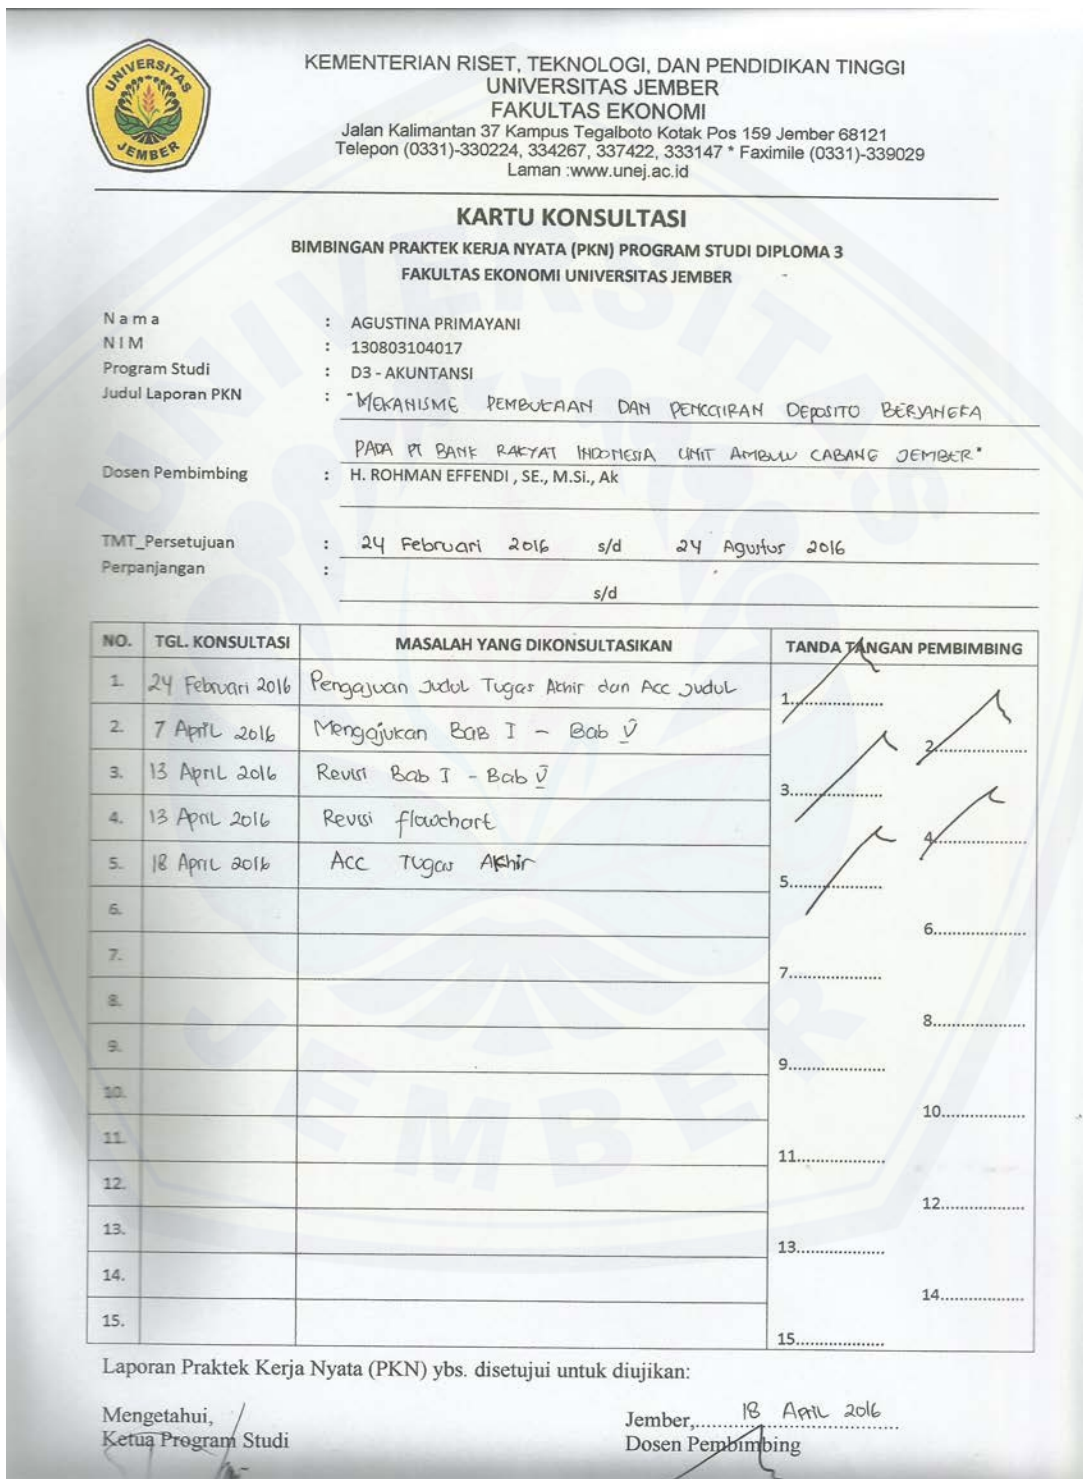 UNIVERSITAS
JEMBER
KEMENTERIAN RISET, TEKNOLOGI, DAN PENDIDIKAN TINGGI
UNIVERSITAS JEMBER
FAKULTAS EKONOMI
Jalan Kalimantan 37 Kampus Tegalboto Kotak Pos 159 Jember 68121
Telepon (0331)-330224, 334267, 337422, 333147 * Faximile (0331)-339029
Laman :www.unej.ac.id
KARTU KONSULTASI
BIMBINGAN PRAKTEK KERJA NYATA (PKN) PROGRAM STUDI DIPLOMA 3
FAKULTAS EKONOMI UNIVERSITAS JEMBER
N a m a : AGUSTINA PRIMAYANI
N I M : 130803104017
Program Studi : D3 - AKUNTANSI
Judul Laporan PKN : "MEKANISME PEMBUKAAN DAN PENCAIRAN DEPOSITO BERJANGKA
PADA PT BANK RAKYAT INDONESIA UNIT AMBULU CABANG JEMBER"
Dosen Pembimbing : H. ROHMAN EFFENDI , SE., M.Si., Ak
TMT_Persetujuan : 24 Februari 2016 s/d 24 Agustus 2016
Perpanjangan :
s/d
NO. TGL. KONSULTASI MASALAH YANG DIKONSULTASIKAN TANDA TANGAN PEMBIMBING
1. 24 Februari 2016 Pengajuan Judul Tugas Akhir dan Acc Judul 1....................
2. 7 April 2016 Mengajukan Bab I - Bab V 2....................
3. 13 April 2016 Revisi Bab I - Bab V 3....................
4. 13 April 2016 Revisi flowchart 4....................
5. 18 April 2016 Acc Tugas Akhir 5....................
6. 6....................
7. 7....................
8. 8....................
9. 9....................
10. 10..................
11. 11..................
12. 12..................
13. 13..................
14. 14..................
15. 15..................
Laporan Praktek Kerja Nyata (PKN) ybs. disetujui untuk diujikan:
Mengetahui,
Ketua Program Studi
Jember, 18 April 2016
Dosen Pembimbing
UNIVERSITAS
JEMBER